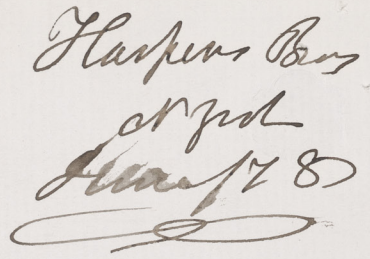 Harpers Bros
N York
June / 78